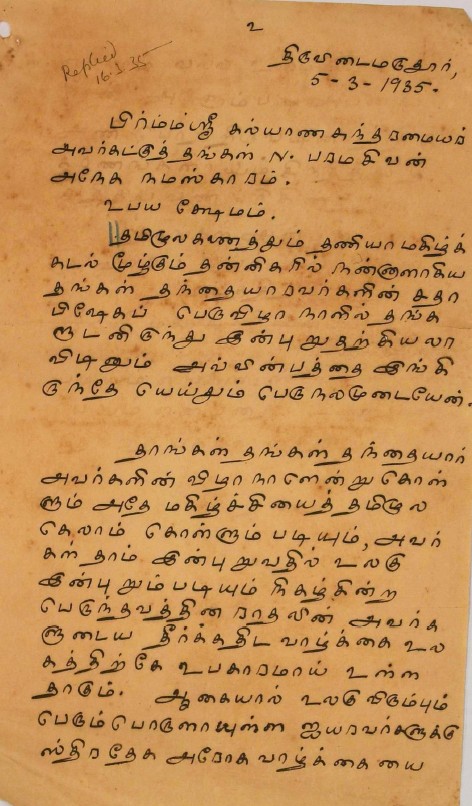 2
Replied
16.3.35
திருவிடைமருதூர்,
5-3-1935.
பிர்ம்மஸ்ரீ கல்யாணசுந்தரமையர்
அவர்கட்குத் தங்கள் N. பரமசிவன்
அநேக நமஸ்காரம்.
உபய க்ஷேமம்.
தமிழுலகனைத்தும் தனியா மகிழ்க்
கடல் மூழ்கும் தன்னிகரில் நன்னாளாகிய
தங்கள் தந்தையாரவர்களின் சதா
பிஷேகப் பெருவிழா நாளில் தங்க
ளுடனிருந்து இன்புறுதற்கியலா
விடினும் அவ்வின்பத்தை இங்கி
ருந்தே யெய்தும் பெருநலமுடையேன்.
தாங்கள் தங்கள் தந்தையார்
அவர்களின் விழா நாளென்று கொள்
ளும் அதே மகிழ்ச்சியைத் தமிழுல
கெலாம் கொள்ளும்படியும், அவர்
கள் தாம் இன்புறுவதில் உலகு
இன்புறும்படியும் நிகழ்கின்ற
பெருந்தவத்தினராதலின் அவர்க
ளுடைய தீர்க்கதிட வாழ்க்கை உல
கத்திற்கே உபகாரமாய் உள்ள
தாகும். ஆகையால் உலகு விரும்பும்
பெரும் பொருளாயுள்ள ஐயரவர்களுக்கு
ஸ்திரதேக அரோக வாழ்க்கையை